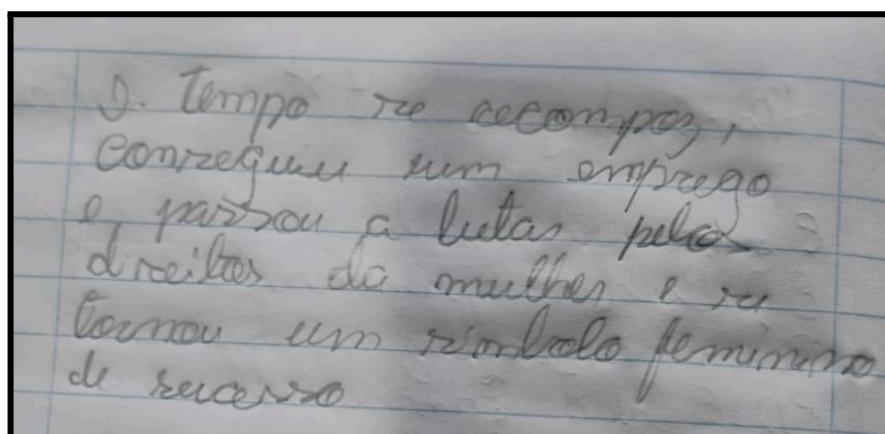 O. tempo se recompoz,
conseguiu um emprego
e passou a lutar pelos
direitos da mulher e se
tornou um símbolo feminino
de sucesso